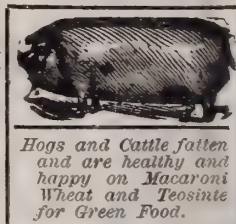 Hogs and Cattle fatten
and are healthy and
happy on Macaroni
Wheat and Teosinte
for Green Food.